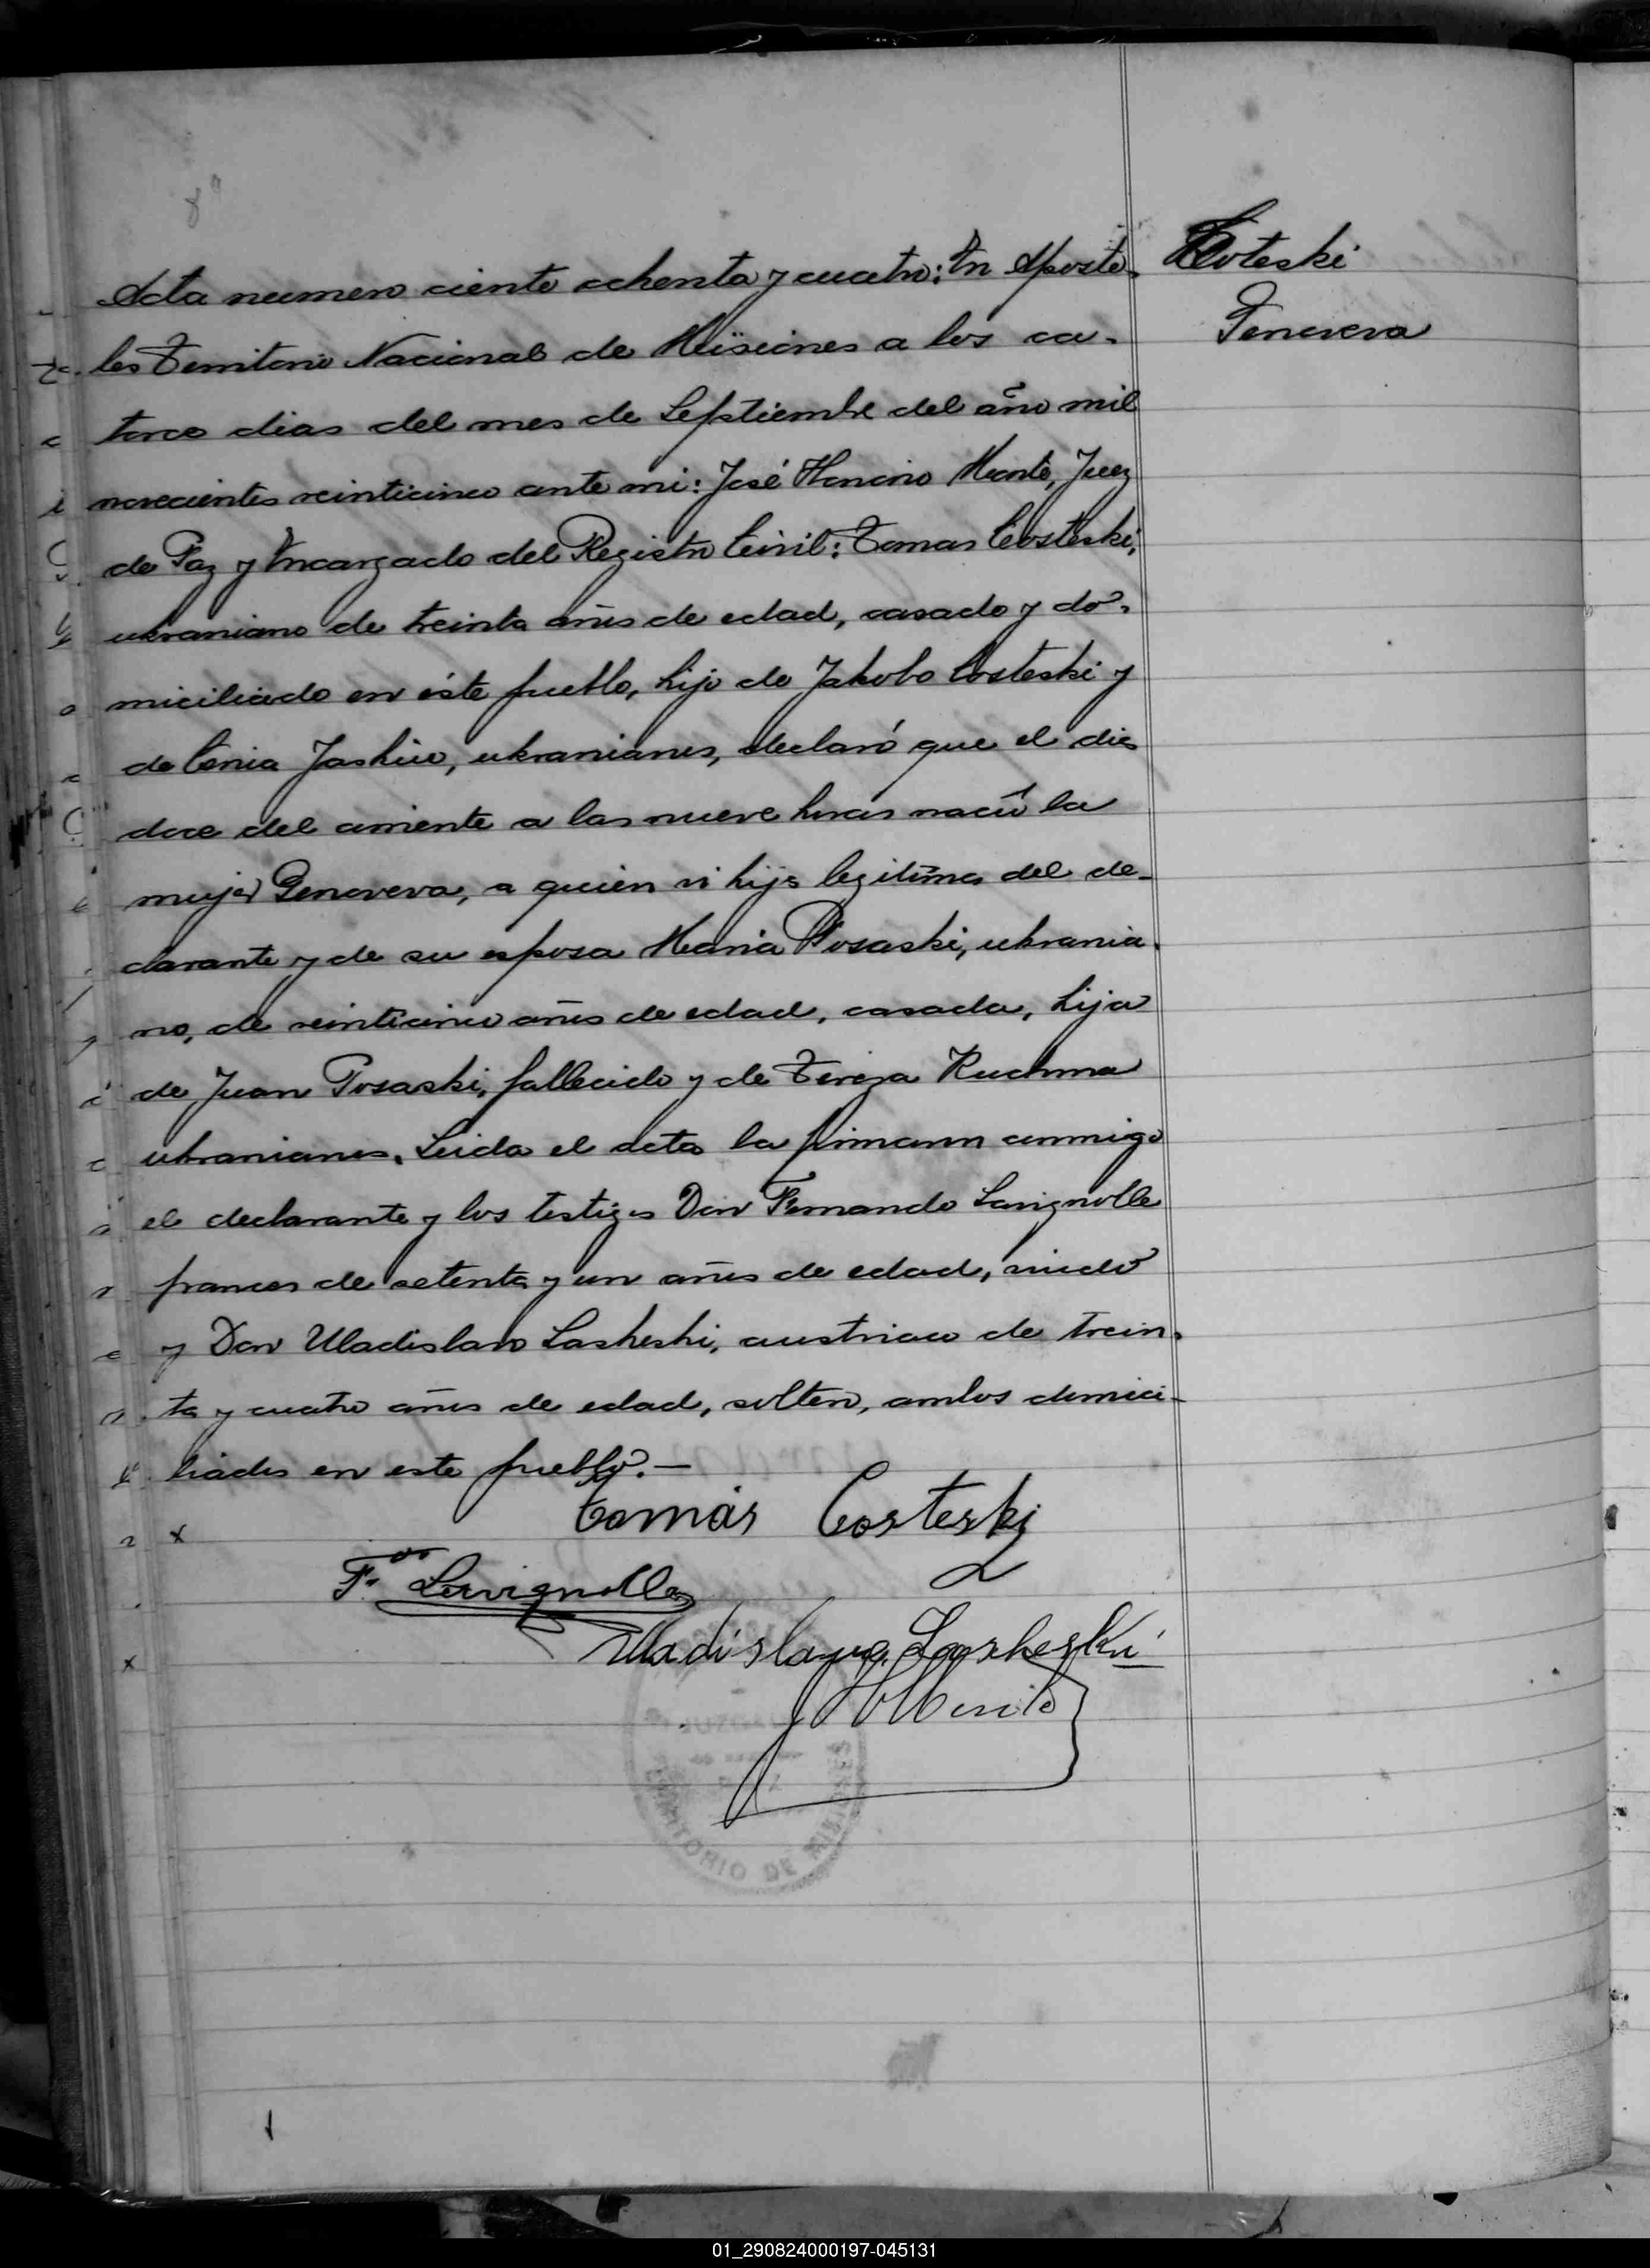 Acta numero ciento ochenta y cuatro: En Aposto-
les Territorio Nacional de Misiones a los ca-
torce dias del mes de Septiembre del año mil
novecientos veinticinco ante mi: José Honorio Merite, Juez
de Paz y Encargado del Registro Civil: Tomas Costeski,
ukraniano de treinta años de edad, casado y do-
miciliado en éste pueblo, hijo de Jakobo Costeski y
de Cenia Jaskiw, ukranianos, declaró que el dia
doce del corriente a las nueve horas nació la
mujer Genoveva, a quien vi hija legitima del de-
clarante y de su esposa Maria Posaski, ukrania-
na, de veinticinco años de edad, casada, hija
de Juan Posaski, fallecido y de Tereza Kuchma
ukranianos. Leida el acta la firmaron conmigo
el declarante y los testigos Don Fernando Lavignolle
frances de setenta y un años de edad, viudo
y Don Uladislavo Lasheski, austriaco de trein-
ta y cuatro años de edad, soltero, ambos domici-
liados en este pueblo.—
Tomás Costeski
F. Lavignolle
Uladislavo Lasheski
TERRITORIO DE MISIONES
Costeski
Genoveva
01_290824000197-045131